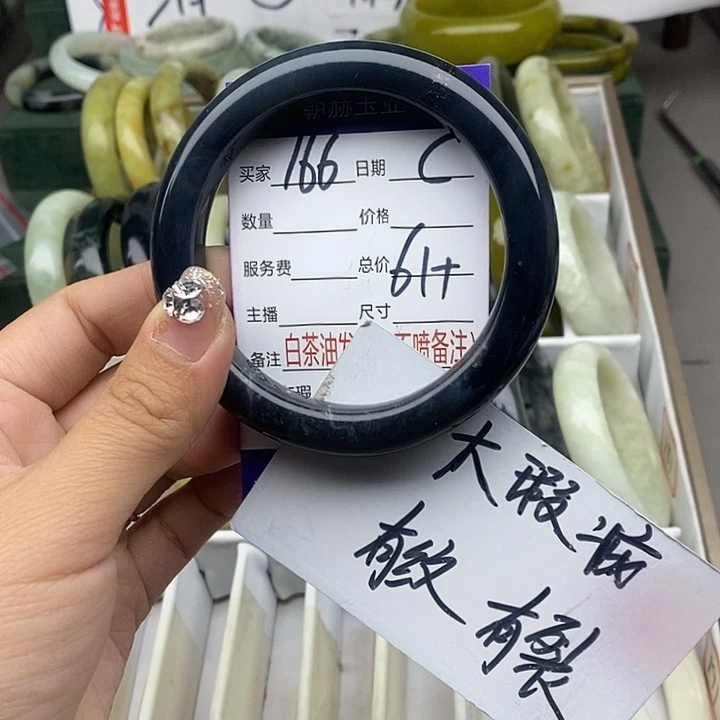 朝赫玉业
买家 166 日期 C
数量 价格
服务费 总价 61+
主播 尺寸
备注 白茶油发 不喷备注
瑕
大瑕疵
有纹
有裂